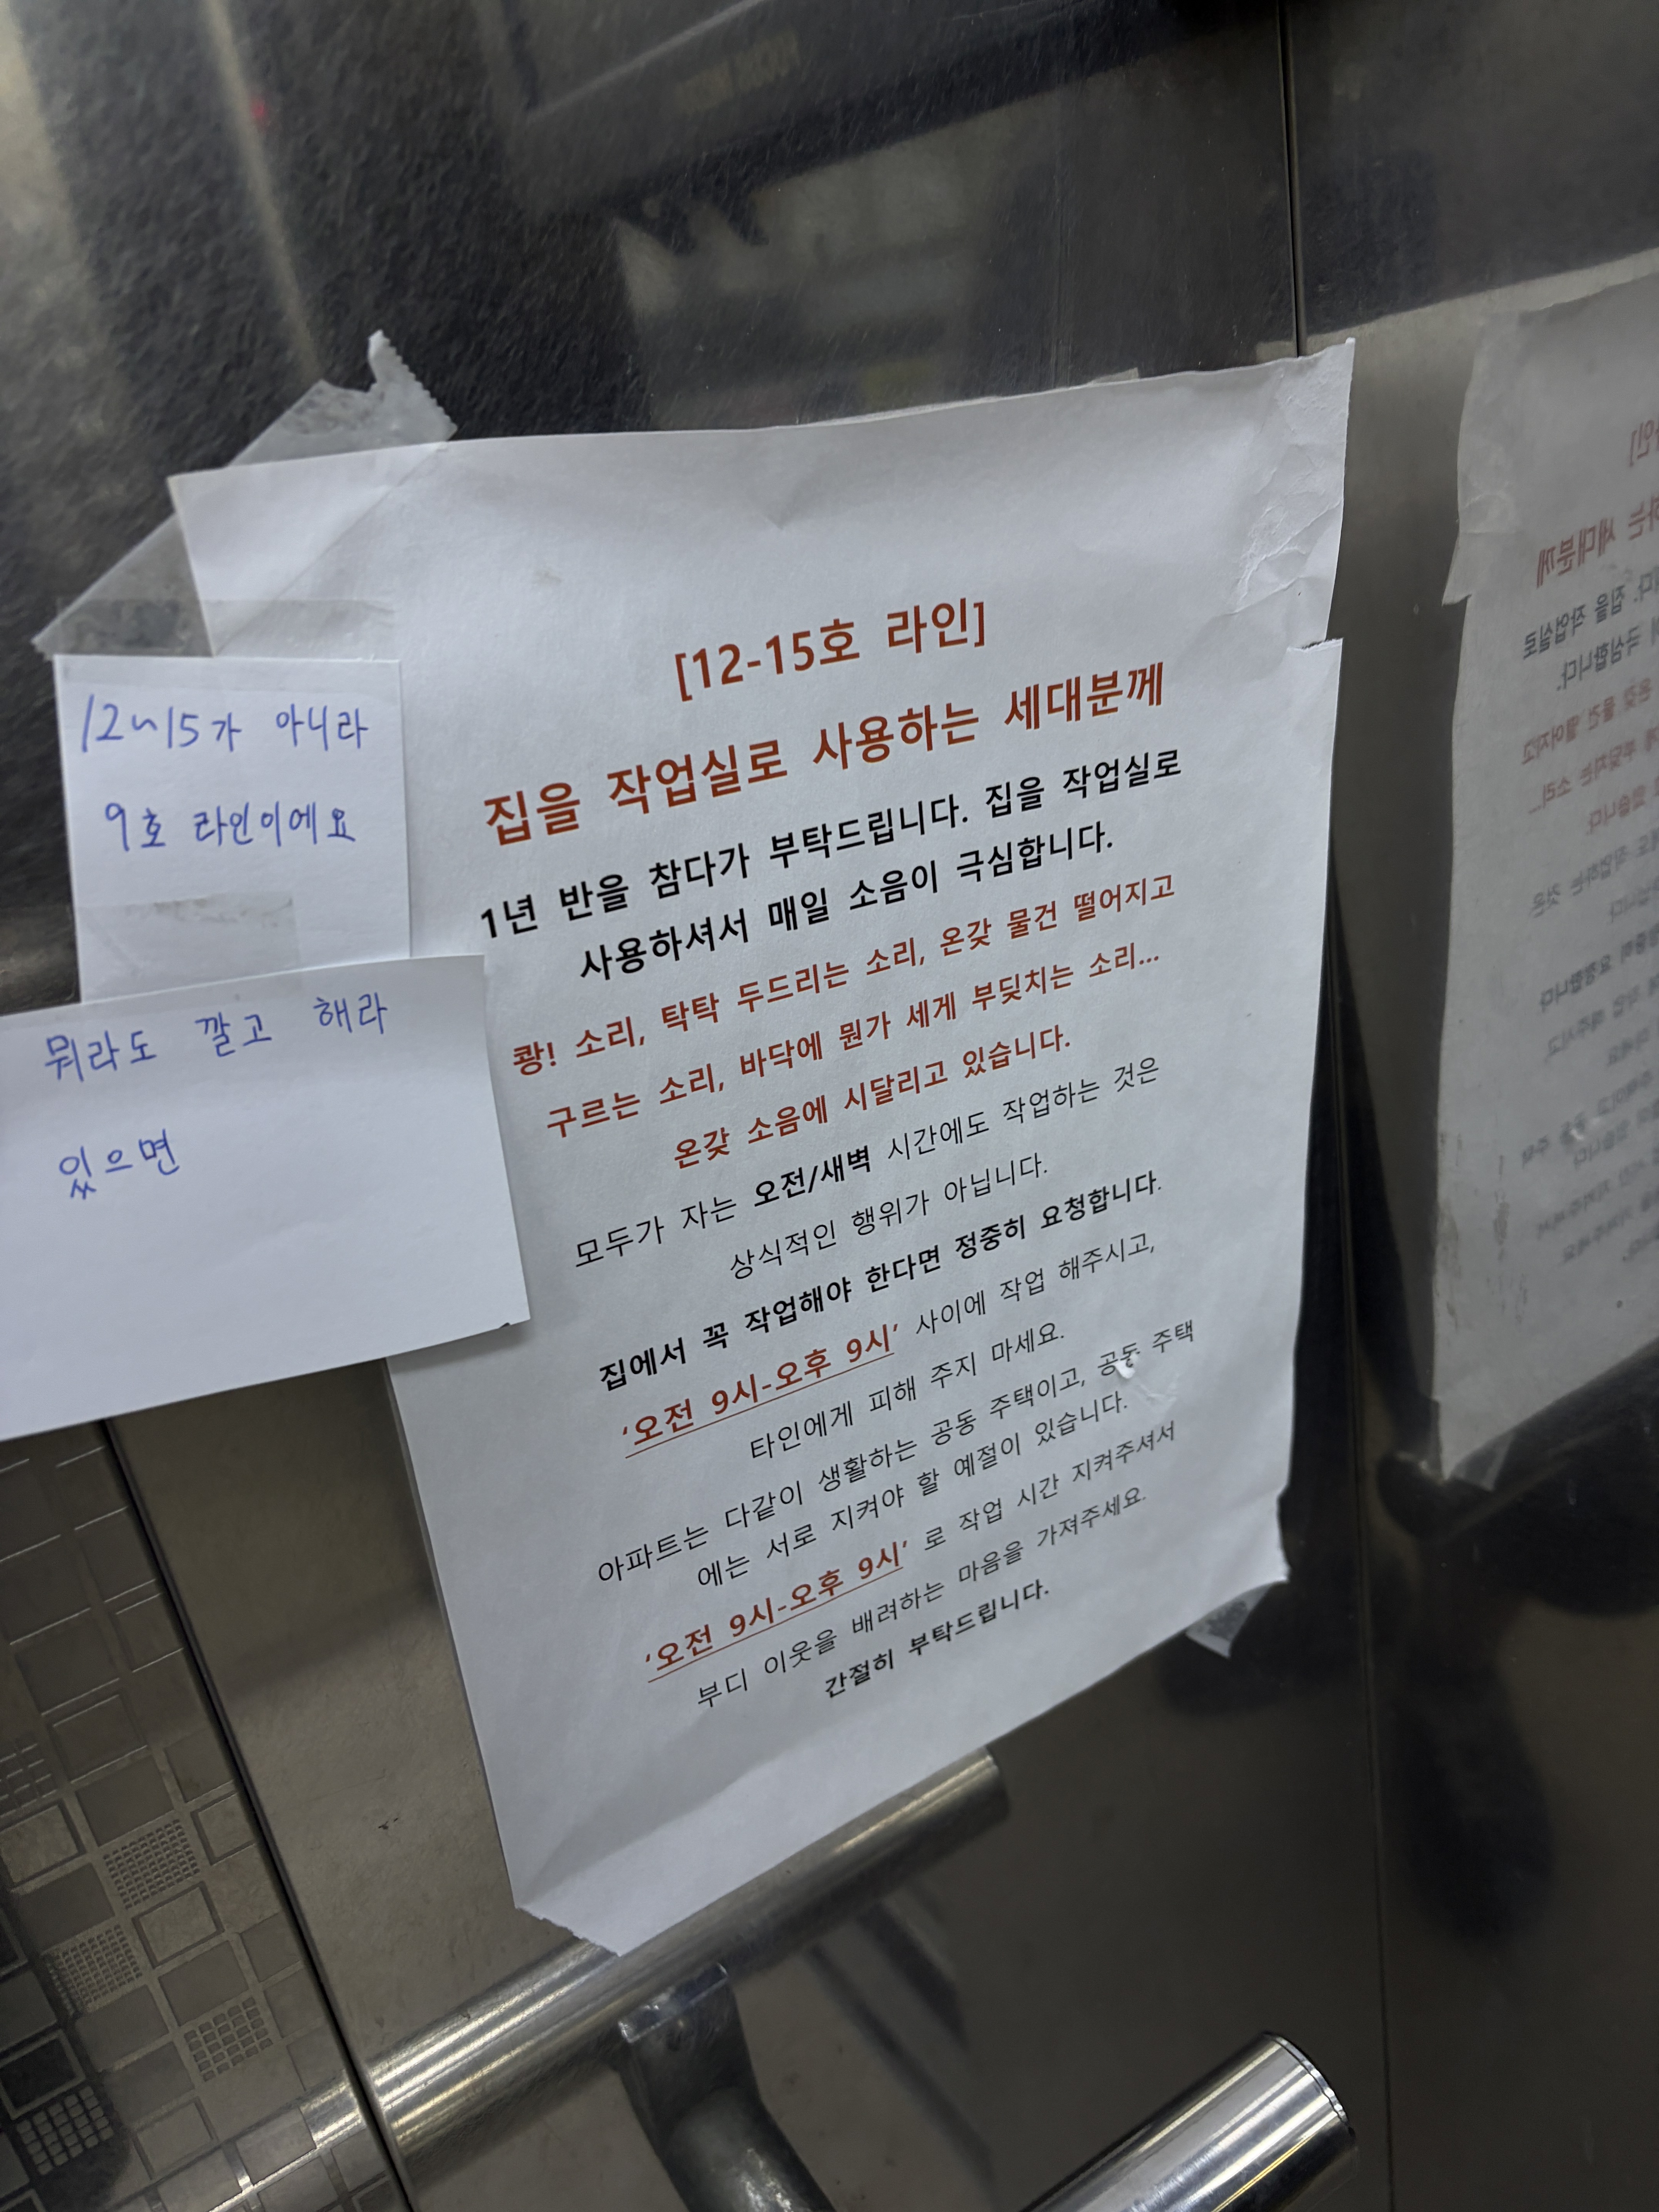 [12-15호 라인]
집을 작업실로 사용하는 세대분께
1년 반을 참다가 부탁드립니다. 집을 작업실로
사용하셔서 매일 소음이 극심합니다.
쾅! 소리, 탁탁 두드리는 소리, 온갖 물건 떨어지고
구르는 소리, 바닥에 뭔가 세게 부딪치는 소리...
온갖 소음에 시달리고 있습니다.
모두가 자는 오전/새벽 시간에도 작업하는 것은
상식적인 행위가 아닙니다.
집에서 꼭 작업해야 한다면 정중히 요청합니다.
‘오전 9시-오후 9시’ 사이에 작업 해주시고,
타인에게 피해 주지 마세요.
아파트는 다같이 생활하는 공동 주택이고, 공동 주택
에는 서로 지켜야 할 예절이 있습니다.
‘오전 9시-오후 9시’ 로 작업 시간 지켜주셔서
부디 이웃을 배려하는 마음을 가져주세요.
간절히 부탁드립니다.
12~15가 아니라
9호 라인이에요
뭐라도 깔고 해라
있으면